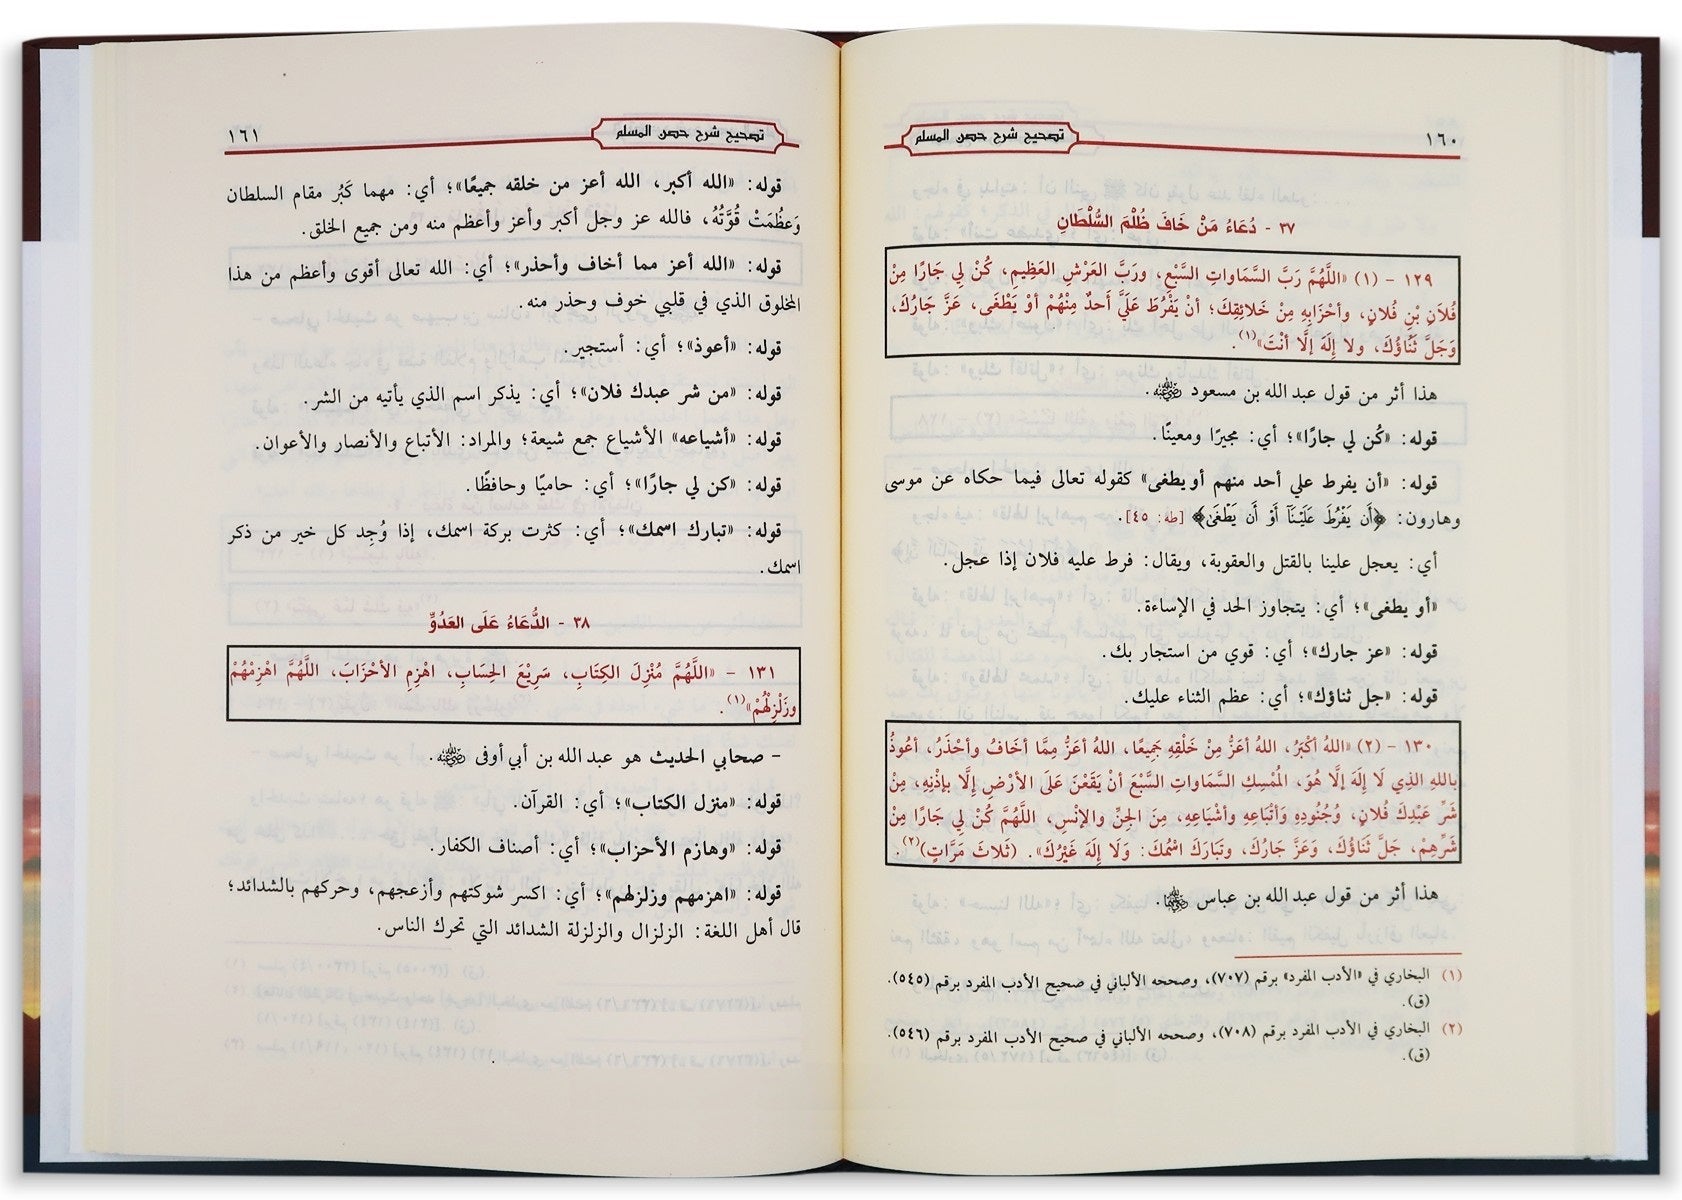 ١٦٠
تصحيح شرح حصن المسلم
٣٧ - دُعَاءُ مَنْ خَافَ ظُلْمَ السُّلْطَانِ
١٢٩ - (١) «اللَّهُمَّ رَبَّ السَّمَاواتِ السَّبْعِ، ورَبَّ العَرْشِ العَظِيمِ، كُنْ لِي جَارًا مِنْ
فُلَانِ بْنِ فُلَانٍ، وأحْزَابِهِ مِنْ خَلائِقِكَ؛ أنْ يَفْرُطَ عَلَيَّ أَحدٌ مِنْهُمْ أوْ يَطْغَى، عَزَّ جَارُكَ،
وَجَلَّ ثَنَاؤُكَ، ولا إلَهَ إلَّا أنْتَ»(١).
هذا أثر من قول عبد الله بن مسعود ﵁.
قوله: «كُن لي جارًا»؛ أي: مجيرًا ومعينًا.
قوله: «أن يفرط علي أحد منهم أو يطغى» كقوله تعالى فيما حكاه عن موسى
وهارون: ﴿أَن يَفْرُطَ عَلَيْنَآ أَوْ أَن يَطْغَىٰ﴾ [طه: ٤٥].
أي: يعجل علينا بالقتل والعقوبة، ويقال: فرط عليه فلان إذا عجل.
«أو يطغى»؛ أي: يتجاوز الحد في الإساءة.
قوله: «عز جارك»؛ أي: قوي من استجار بك.
قوله: «جل ثناؤك»؛ أي: عظم الثناء عليك.
١٣٠ - (٢) «اللهُ أكْبَرُ، اللهُ أعَزُّ مِنْ خَلْقِهِ جَمِيعًا، اللهُ أعَزُّ مِمَّا أخَافُ وأحْذَرُ، أعُوذُ
باللهِ الذِي لَا إلَهَ إلَّا هُوَ، المُمْسِكِ السَّمَاواتِ السَّبْعَ أنْ يَقَعْنَ عَلَى الأرْضِ إلَّا بإذْنِهِ، مِنْ
شَرِّ عَبْدِكَ فُلَانٍ، وجُنُودِهِ وَأتْبَاعِهِ وأشْيَاعِهِ، مِنَ الجِنِّ والإنْسِ، اللَّهُمَّ كُنْ لِي جَارًا مِنْ
شَرِّهِمْ، جَلَّ ثَنَاؤُكَ، وَعَزَّ جَارُكَ، وتَبَارَكَ اسْمُكَ: وَلَا إلَهَ غَيْرُكَ». (ثَلاثَ مَرَّاتٍ)(٢).
هذا أثر من قول عبد الله بن عباس ﵄.
(١) البخاري في «الأدب المفرد» برقم (٧٠٧)، وصححه الألباني في صحيح الأدب المفرد برقم (٥٤٥).
(ق).
(٢) البخاري في الأدب المفرد برقم (٧٠٨)، وصححه الألباني في صحيح الأدب المفرد برقم (٥٤٦).
(ق).
تصحيح شرح حصن المسلم
١٦١
قوله: «الله أكبر، الله أعز من خلقه جميعًا»؛ أي: مهما كَبُر مقام السلطان
وَعظُمَتْ قُوَّتُهُ، فالله عز وجل أكبر وأعز وأعظم منه ومن جميع الخلق.
قوله: «الله أعز مما أخاف وأحذر»؛ أي: الله تعالى أقوى وأعظم من هذا
المخلوق الذي في قلبي خوف وحذر منه.
قوله: «أعوذ»؛ أي: أستجير.
قوله: «من شر عبدك فلان»؛ أي: يذكر اسم الذي يأتيه من الشر.
قوله: «أشياعه» الأشياع جمع شيعة؛ والمراد: الأتباع والأنصار والأعوان.
قوله: «كن لي جارًا»؛ أي: حاميًا وحافظًا.
قوله: «تبارك اسمك»؛ أي: كثرت بركة اسمك، إذا وُجِد كل خير من ذكر
اسمك.
٣٨ - الدُّعَاءُ عَلَى العَدُوِّ
١٣١ - «اللَّهُمَّ مُنْزِلَ الكِتَابِ، سَرِيْعَ الحِسَابِ، اهْزِمِ الأحْزَابَ، اللَّهُمَّ اهْزِمْهُمْ
وزَلْزِلْهُمْ»(١).
- صحابي الحديث هو عبد الله بن أبي أوفى ﵁.
قوله: «منزل الكتاب»؛ أي: القرآن.
قوله: «وهازم الأحزاب»؛ أي: أصناف الكفار.
قوله: «اهزمهم وزلزلهم»؛ أي: اكسر شوكتهم وأزعجهم، وحركهم بالشدائد؛
قال أهل اللغة: الزلزال والزلزلة الشدائد التي تحرك الناس.